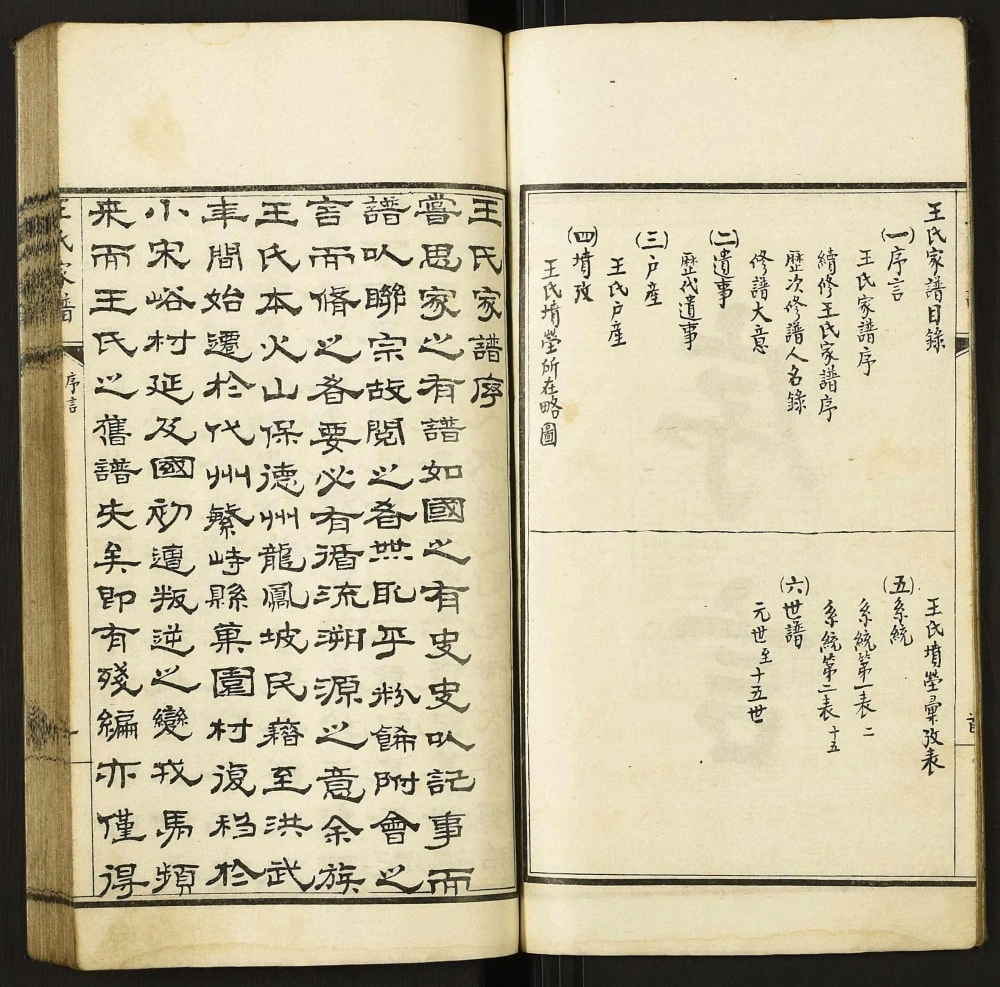 王氏家譜目錄
㈠序言
王氏家譜序
續修王氏家譜序
歷次修譜人名錄
修譜大意
㈡遺事
歷代遺事
㈢戶産
王氏戶産
㈣墳攷
王氏墳塋所在略圖
王氏墳塋彙攷表
㈤系統
系統第一表 二
系統第二表 十五
㈥世譜
元世至十五世
王氏家譜序
嘗思家之有譜如國之有史史以記事而
譜以聯宗故閱之者無取乎粉餙附會之
言而脩之者要必有循流溯源之意余族
王氏本火山保德州龍鳳坡民籍至洪武
年間始遷於代州繁峙縣菓園村復移於
小宋峪村延及國初遭叛逆之變戎馬頻
来而王氏之舊譜失矣即有殘編亦僅得
王氏家譜
序言